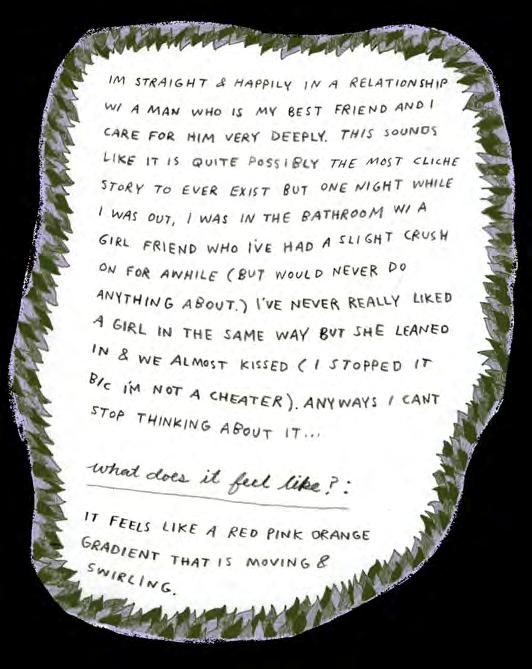 IM STRAIGHT & HAPPILY IN A RELATIONSHIP
W/ A MAN WHO IS MY BEST FRIEND AND I
CARE FOR HIM VERY DEEPLY. THIS SOUNDS
LIKE IT IS QUITE POSSIBLY THE MOST CLICHE
STORY TO EVER EXIST BUT ONE NIGHT WHILE
I WAS OUT, I WAS IN THE BATHROOM W/ A
GIRL FRIEND WHO I'VE HAD A SLIGHT CRUSH
ON FOR AWHILE (BUT WOULD NEVER DO
ANYTHING ABOUT.) I'VE NEVER REALLY LIKED
A GIRL IN THE SAME WAY BUT SHE LEANED
IN & WE ALMOST KISSED (I STOPPED IT
B/C I'M NOT A CHEATER). ANYWAYS I CANT
STOP THINKING ABOUT IT...
what does it feel like?:
IT FEELS LIKE A RED PINK ORANGE
GRADIENT THAT IS MOVING &
SWIRLING.